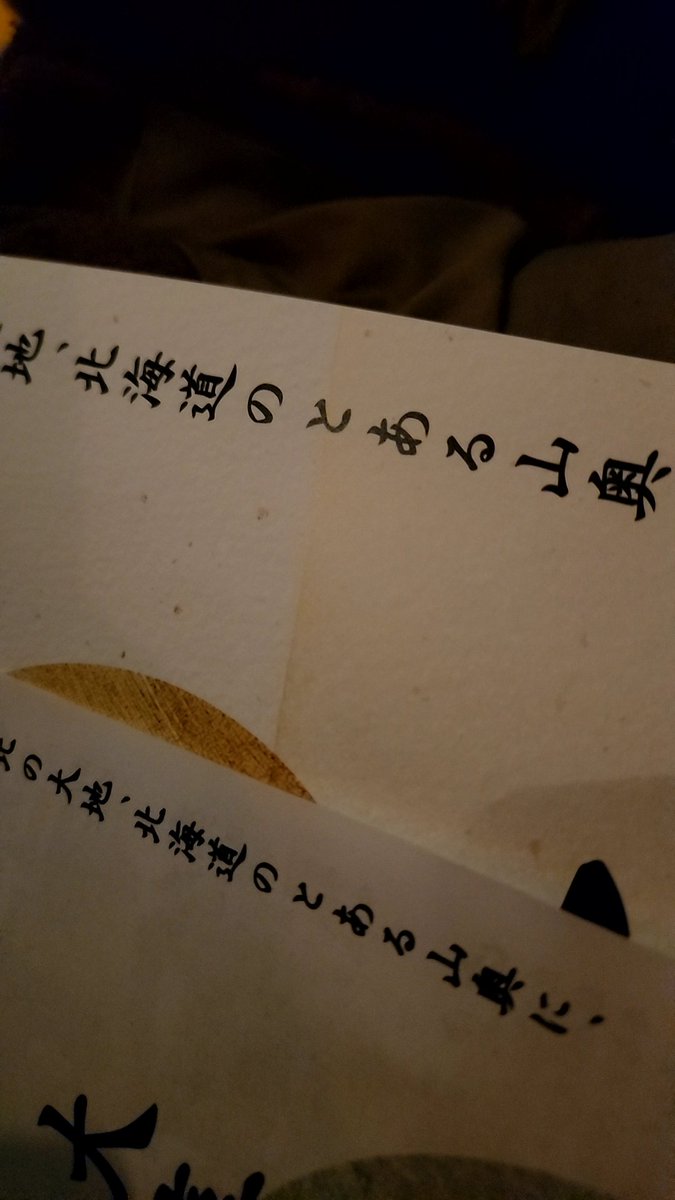 地、北海道のとある山奥
北の大地、北海道のとある山奥に、
大